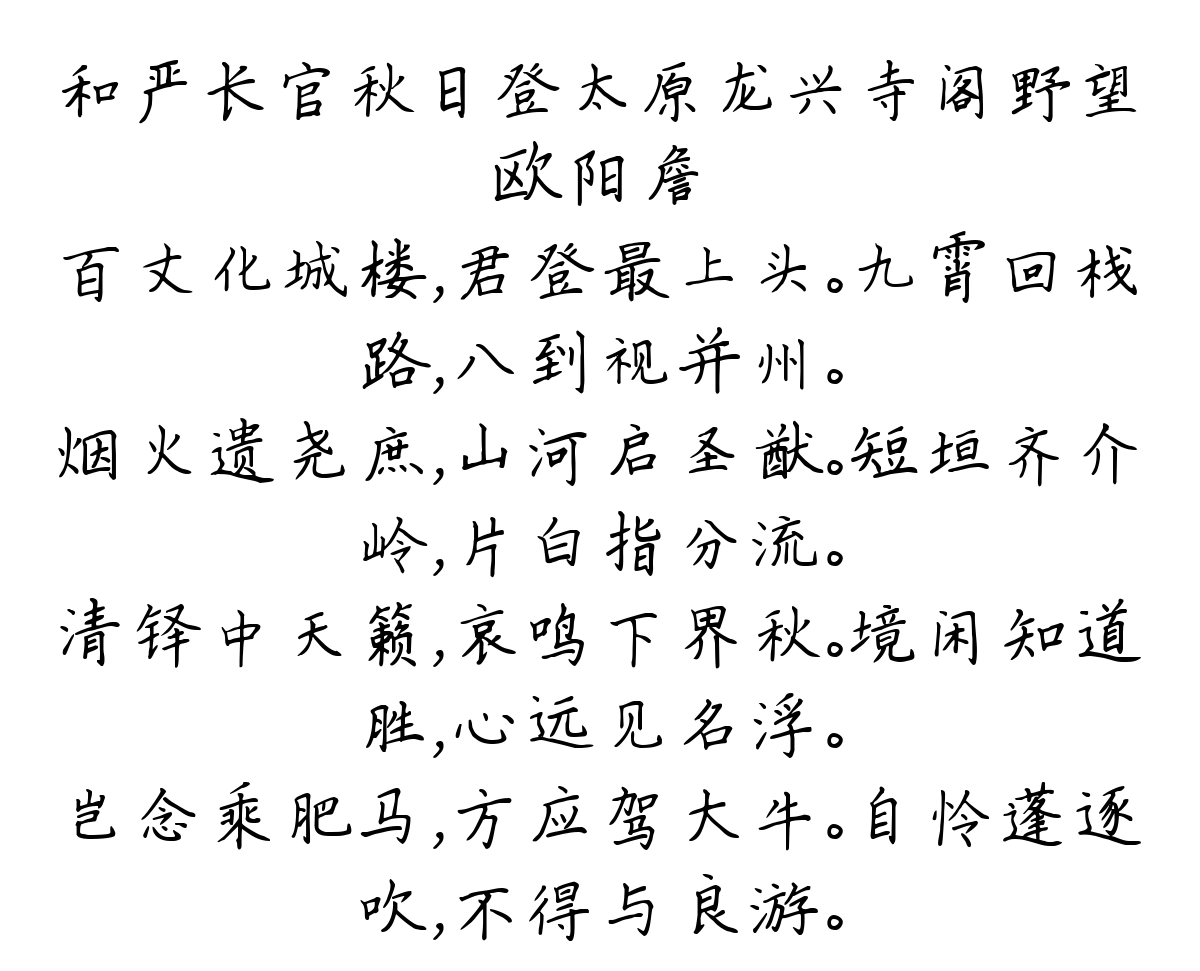 和严长官秋日登太原龙兴寺阁野望
欧阳詹
百丈化城楼,君登最上头。九霄回栈
路,八到视并州。
烟火遗尧庶,山河启圣猷。短垣齐介
岭,片白指分流。
清铎中天籁,哀鸣下界秋。境闲知道
胜,心远见名浮。
岂念乘肥马,方应驾大牛。自怜蓬逐
吹,不得与良游。